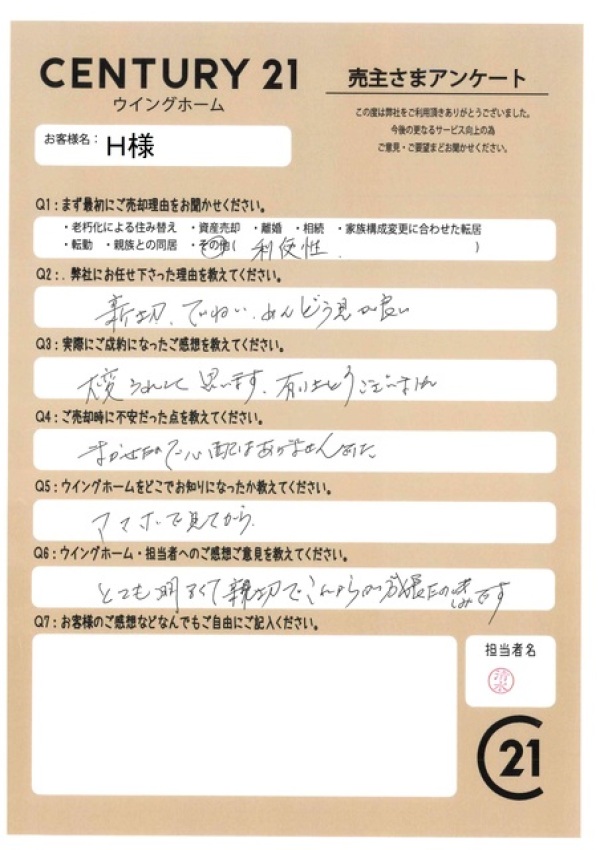 CENTURY 21
ウイングホーム
売主さまアンケート
この度は弊社をご利用頂きありがとうございました。
今後の更なるサービス向上の為
ご意見・ご要望などお聞かせください。
お客様名： H様
Q1：まず最初にご売却理由をお聞かせください。
・老朽化による住み替え ・資産売却 ・離婚 ・相続 ・家族構成変更に合わせた転居
・転勤 ・親族との同居 ・その他( 利便性. )
Q2：. 弊社にお任せ下さった理由を教えてください。
親切、ていねい、めんどう見が良い
Q3：実際にご成約になったご感想を教えてください。
大変うれしく思います、有りがとうございました
Q4：ご売却時に不安だった点を教えてください。
まかせたので心配はありませんでした
Q5：ウイングホームをどこでお知りになったか教えてください。
スマホで見てから
Q6：ウイングホーム・担当者へのご感想ご意見を教えてください。
とても明るくて親切で
Q7：お客様のご感想などなんでもご自由にご記入ください。
担当者名
清水
C21